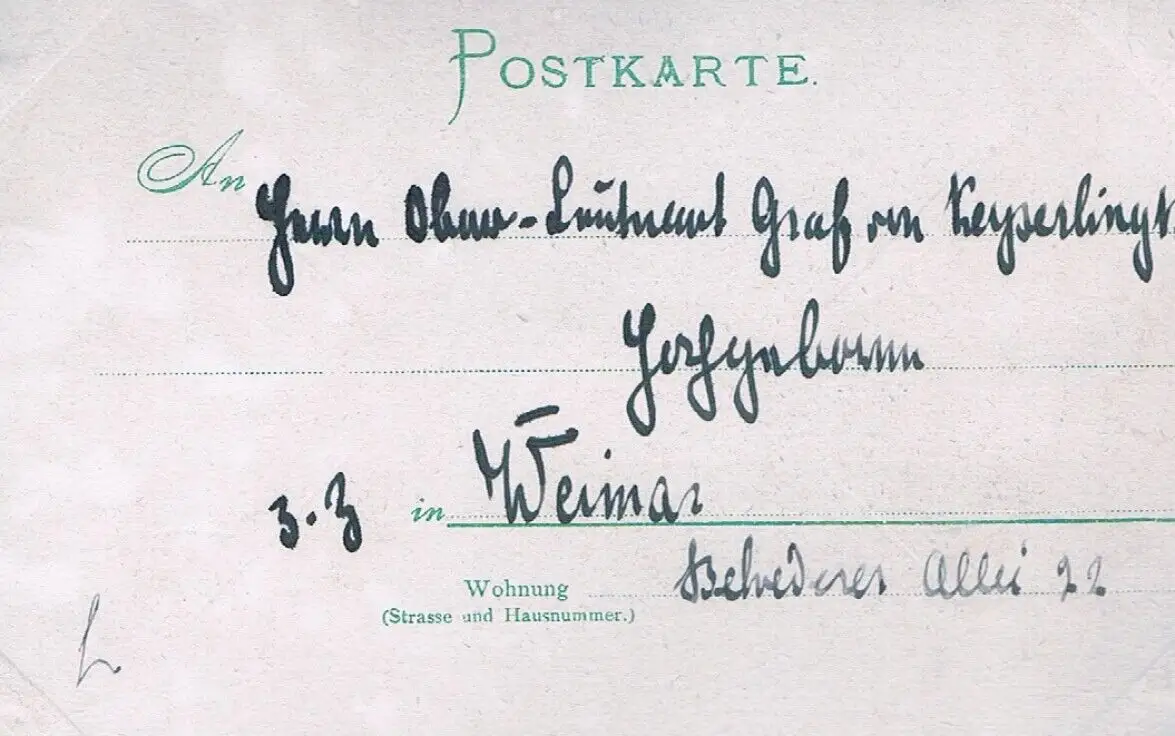 POSTKARTE.
An Herrn Ober-Leutnant Graf von Keyserlingk
Hochgeboren
z. Z in Weimar
Wohnung Belvederer Allee 22
(Strasse und Hausnummer.)